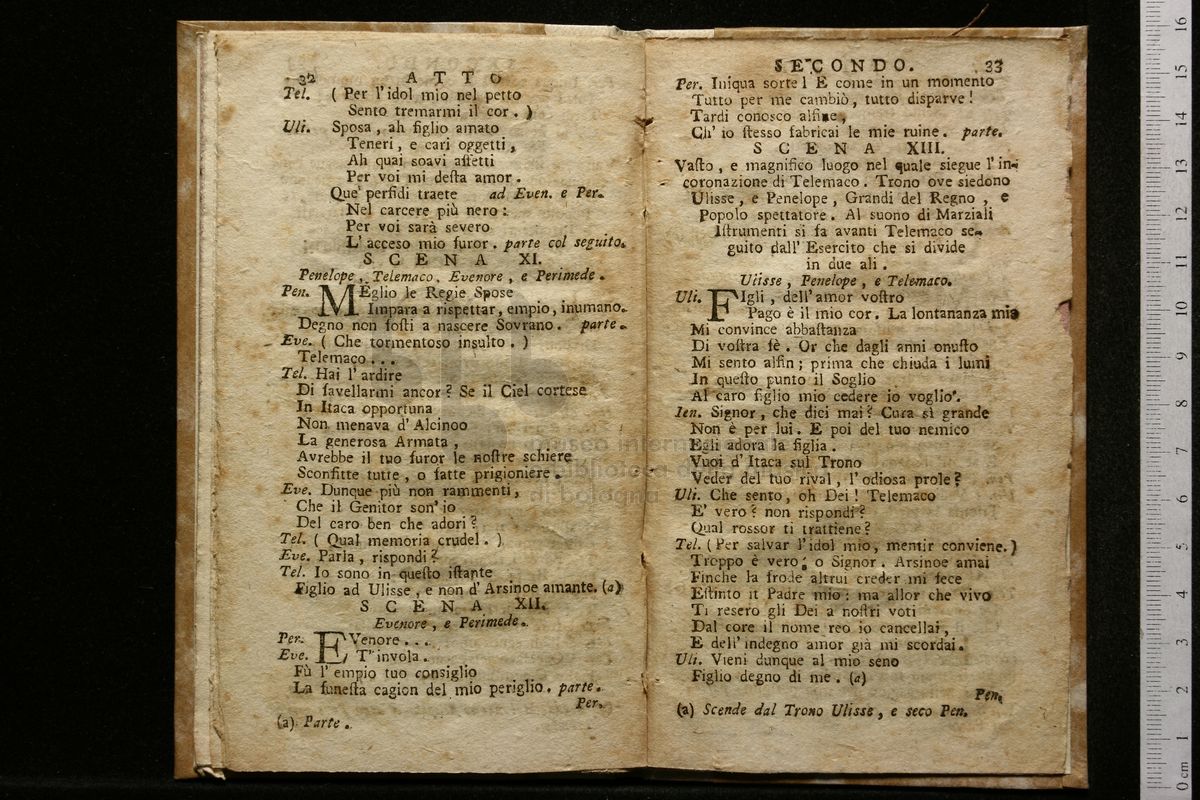 32 ATTO
Tel. ( Per l'idol mio nel petto
Sento tremarmi il cor. )
Uli. Sposa, ah figlio amato
Teneri, e cari oggetti,
Ah quai soavi affetti
Per voi mi desta amor.
Que' perfidi traete ad Even. e Per.
Nel carcere più nero:
Per voi sarà severo
L'acceso mio furor. parte col seguito.
SCENA XI.
Penelope, Telemaco, Evenore, e Perimede.
Pen. MEglio le Regie Spose
Impara a rispettar, empio, inumano.
Degno non fosti a nascere Sovrano. parte.
Eve. ( Che tormentoso insulto. )
Telemaco...
Tel. Hai l'ardire
Di favellarmi ancor? Se il Ciel cortese
In Itaca opportuna
Non menava d'Alcinoo
La generosa Armata,
Avrebbe il tuo furor le nostre schiere
Sconfitte tutte, o fatte prigioniere.
Eve. Dunque più non rammenti,
Che il Genitor son' io
Del caro ben che adori?
Tel. ( Qual memoria crudel. )
Eve. Parla, rispondi?
Tel. Io sono in questo istante
Figlio ad Ulisse, e non d'Arsinoe amante. (a)
SCENA XII.
Evenore, e Perimede.
Per. EVenore...
Eve. T'invola.
Fù l'empio tuo consiglio
La funesta cagion del mio periglio. parte.
Per.
(a) Parte.
SECONDO. 33
Per. Iniqua sorte! E come in un momento
Tutto per me cambiò, tutto disparve!
Tardi conosco alfine,
Ch' io stesso fabricai le mie ruine. parte.
SCENA XIII.
Vasto, e magnifico luogo nel quale siegue l'in-
coronazione di Telemaco. Trono ove siedono
Ulisse, e Penelope, Grandi del Regno, e
Popolo spettatore. Al suono di Marziali
Istrumenti si fa avanti Telemaco se-
guito dall' Esercito che si divide
in due ali.
Ulisse, Penelope, e Telemaco.
Uli. FIgli, dell'amor vostro
Pago è il mio cor. La lontananza mia
Mi convince abbastanza
Di vostra fè. Or che dagli anni onusto
Mi sento alfin; prima che chiuda i lumi
In questo punto il Soglio
Al caro figlio mio cedere io voglio.
Ien. Signor, che dici mai? Cura sì grande
Non è per lui. E poi del tuo nemico
Egli adora la figlia.
Vuoi d'Itaca sul Trono
Veder del tuo rival, l'odiosa prole?
Uli. Che sento, oh Dei! Telemaco
E' vero? non rispondi?
Qual rossor ti trattiene?
Tel. (Per salvar l'idol mio, mentir conviene.)
Troppo è vero; o Signor. Arsinoe amai
Finche la frode altrui creder mi fece
Estinto il Padre mio: ma allor che vivo
Ti resero gli Dei a nostri voti
Dal core il nome reo io cancellai,
E dell'indegno amor già mi scordai.
Uli. Vieni dunque al mio seno
Figlio degno di me. (a)
Pen.
(a) Scende dal Trono Ulisse, e seco Pen.
museo internazionale
e biblioteca della musica
di bologna
0 cm 1 2 3 4 5 6 7 8 9 10 11 12 13 14 15 16